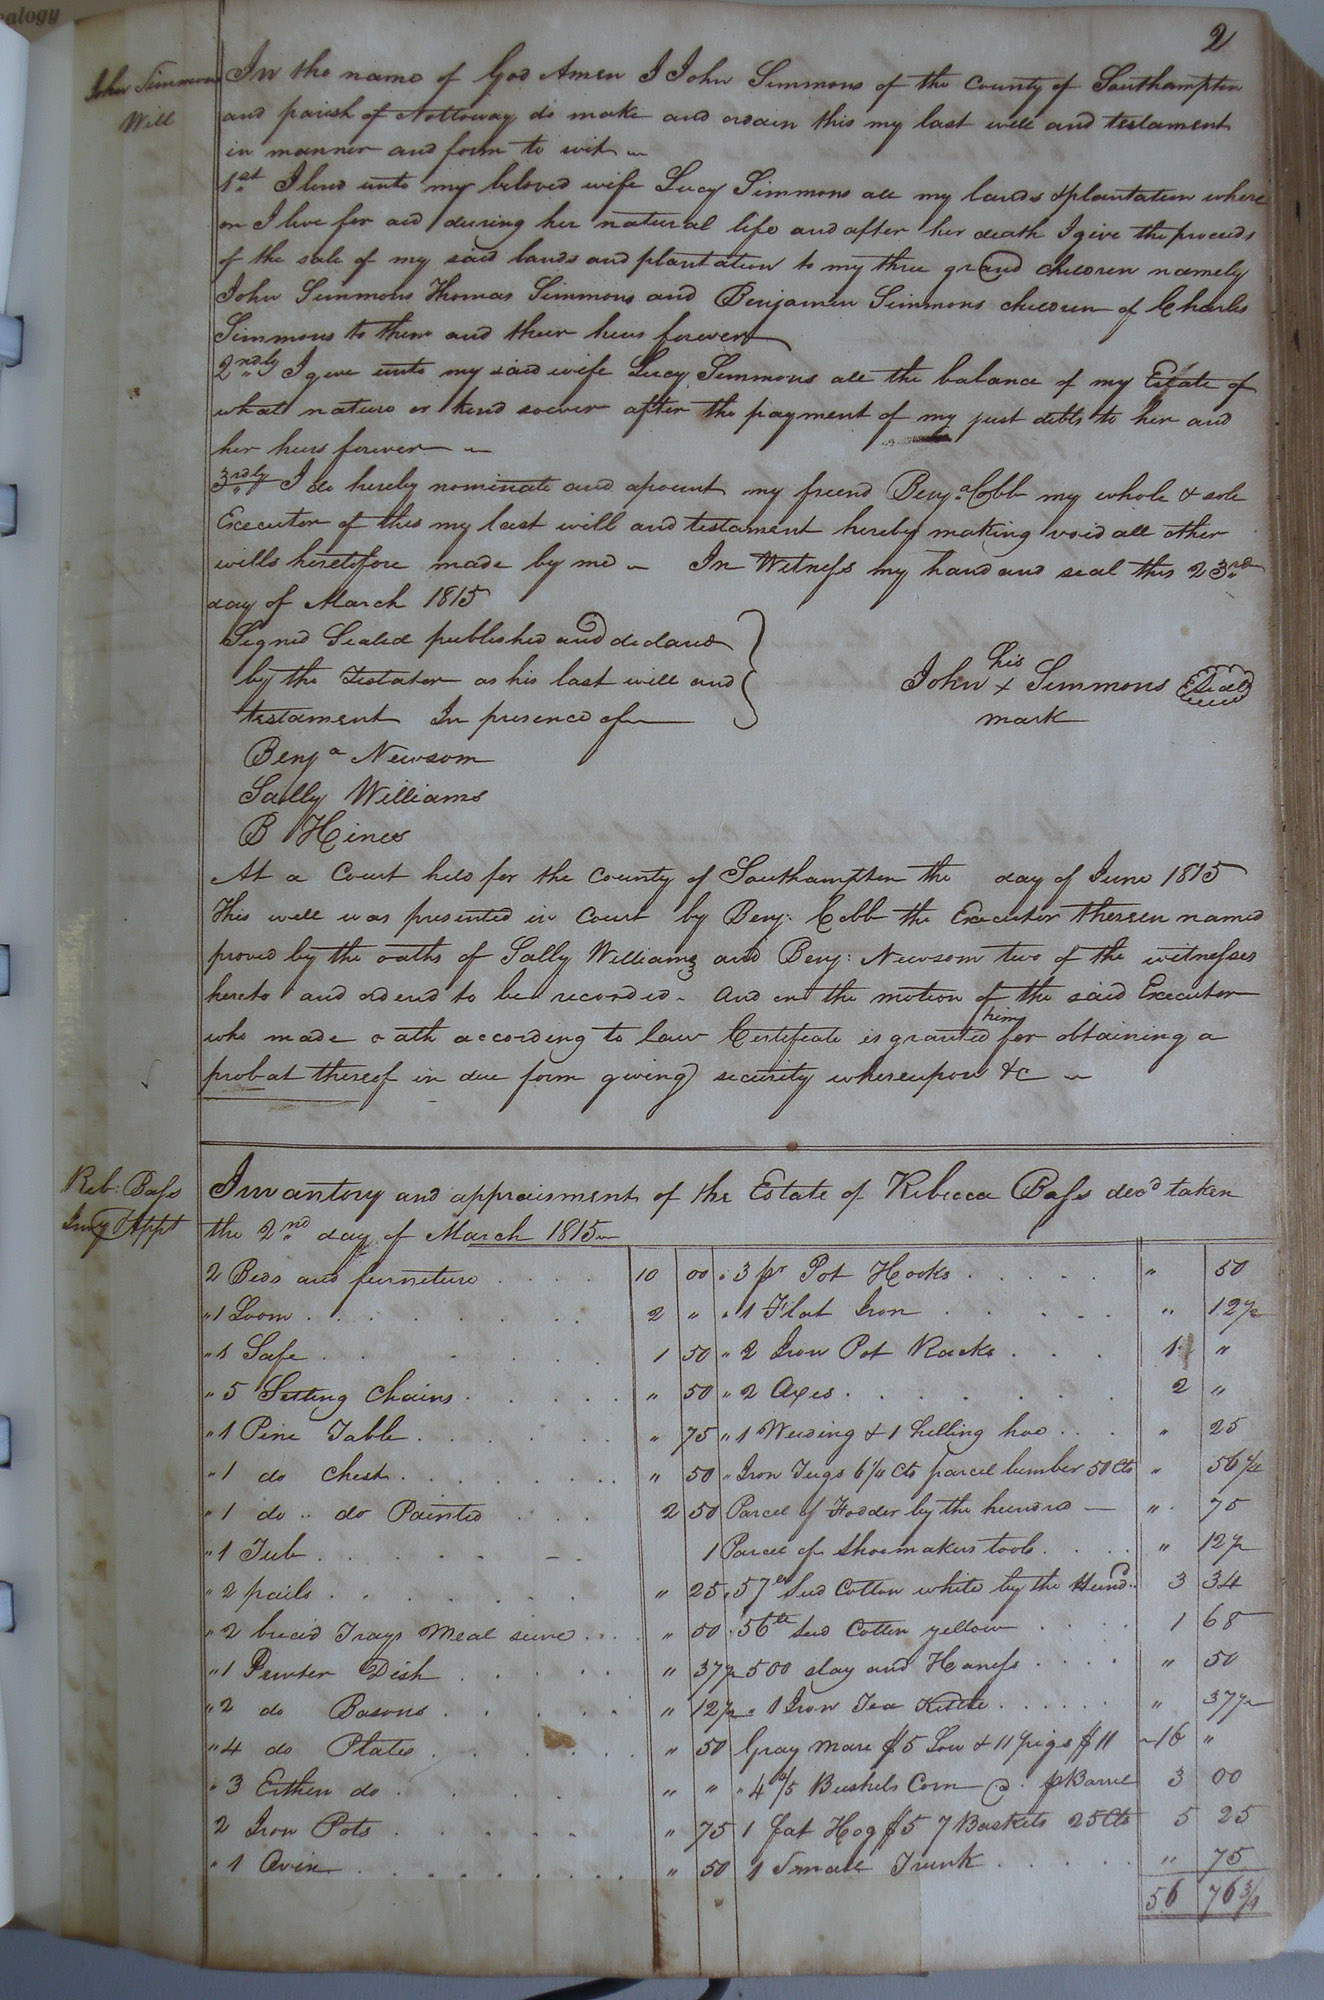 ealogy
2
John Simmons
Will
In the name of God Amen I John Simmons of the County of Southampton
and parish of Nottoway do make and ordain this my last will and testament
in manner and form to wit
1st I lend unto my beloved wife Lucy Simmons all my lands & plantation where
on I live for and during her natural life and after her death I give the proceeds
of the sale of my said lands and plantation to my three grand children namely
John Simmons Thomas Simmons and Benjamin Simmons children of Charles
Simmons to them and their heirs forever
2ndly I give unto my said wife Lucy Simmons all the balance of my Estate of
what nature or kind soever after the payment of my just debts to her and
her heirs forever
3rdly I do hereby nominate and apoint my friend Benja Cobb my whole & sole
Executor of this my last will and testament hereby making void all other
wills heretofore made by me – In Witness my hand and seal this 23rd
day of March 1815
Signed Sealed published and declared
by the Testator as his last will and
testament In presence of
his
John x Simmons Seal
mark
Benja Newsom
Sally Williams
B Hines
At a Court held for the County of Southampton the day of June 1815
This will was presented in Court by Benj: Cobb the Executor therein named
proved by the oaths of Sally Williams and Benj: Newsom two of the witnesses
hereto and ordered to be recorded. And on the motion of the said Executor
who made oath according to law Certificate is granted him for obtaining a
probat thereof in due form giving security whereupon &c
Reb: Bass
Invy & Appt
Inventory and appraisment of the Estate of Rebecca Bass decd taken
the 2nd day of March 1815
2 Beds and furniture 10 00 " 3 pr Pot Hooks " 50
" 1 Loom 2 " " 1 Flat Iron " 12 1/2
" 1 Safe 1 50 " 2 Iron Pot Racks 1 "
" 5 Setting Chairs " 50 " 2 Axes 2 "
" 1 Pine Table " 75 " 1 Weeding & 1 hilling hoe " 25
" 1 do Chest " 50 " Iron 6 1/4 Cts parcel lumber 50 Cts " 56 1/4
" 1 do " do Painted 2 50 Parcel of Fodder by the hundred " 75
" 1 Tub 1 Parcel of Shoemakers tools " 12 1/2
" 2 pails " 25 " 57 lb Seed Cotton white by the Hund. 3 34
" 2 bread Trays Meal sieve " 50 " 56 lb Seed Cotton yellow 1 68
" 1 Pewter Dish " 37 1/2 500 slay and Harness " 50
" 2 do Basons " 12 1/2 " 1 Iron Tea Kettle " 37 1/2
" 4 do Plates " 50 Gray Mare $5 Sow & 11 pigs $11 16 "
" 3 Earthen do " " " 4 Bushels Corn @ pr Barrel 3 00
2 Iron Pots " 75 1 fat Hog $5 7 Baskets 25 Cts 5 25
" 1 Oven " 50 1 Small Trunk " 75
56 76 3/4